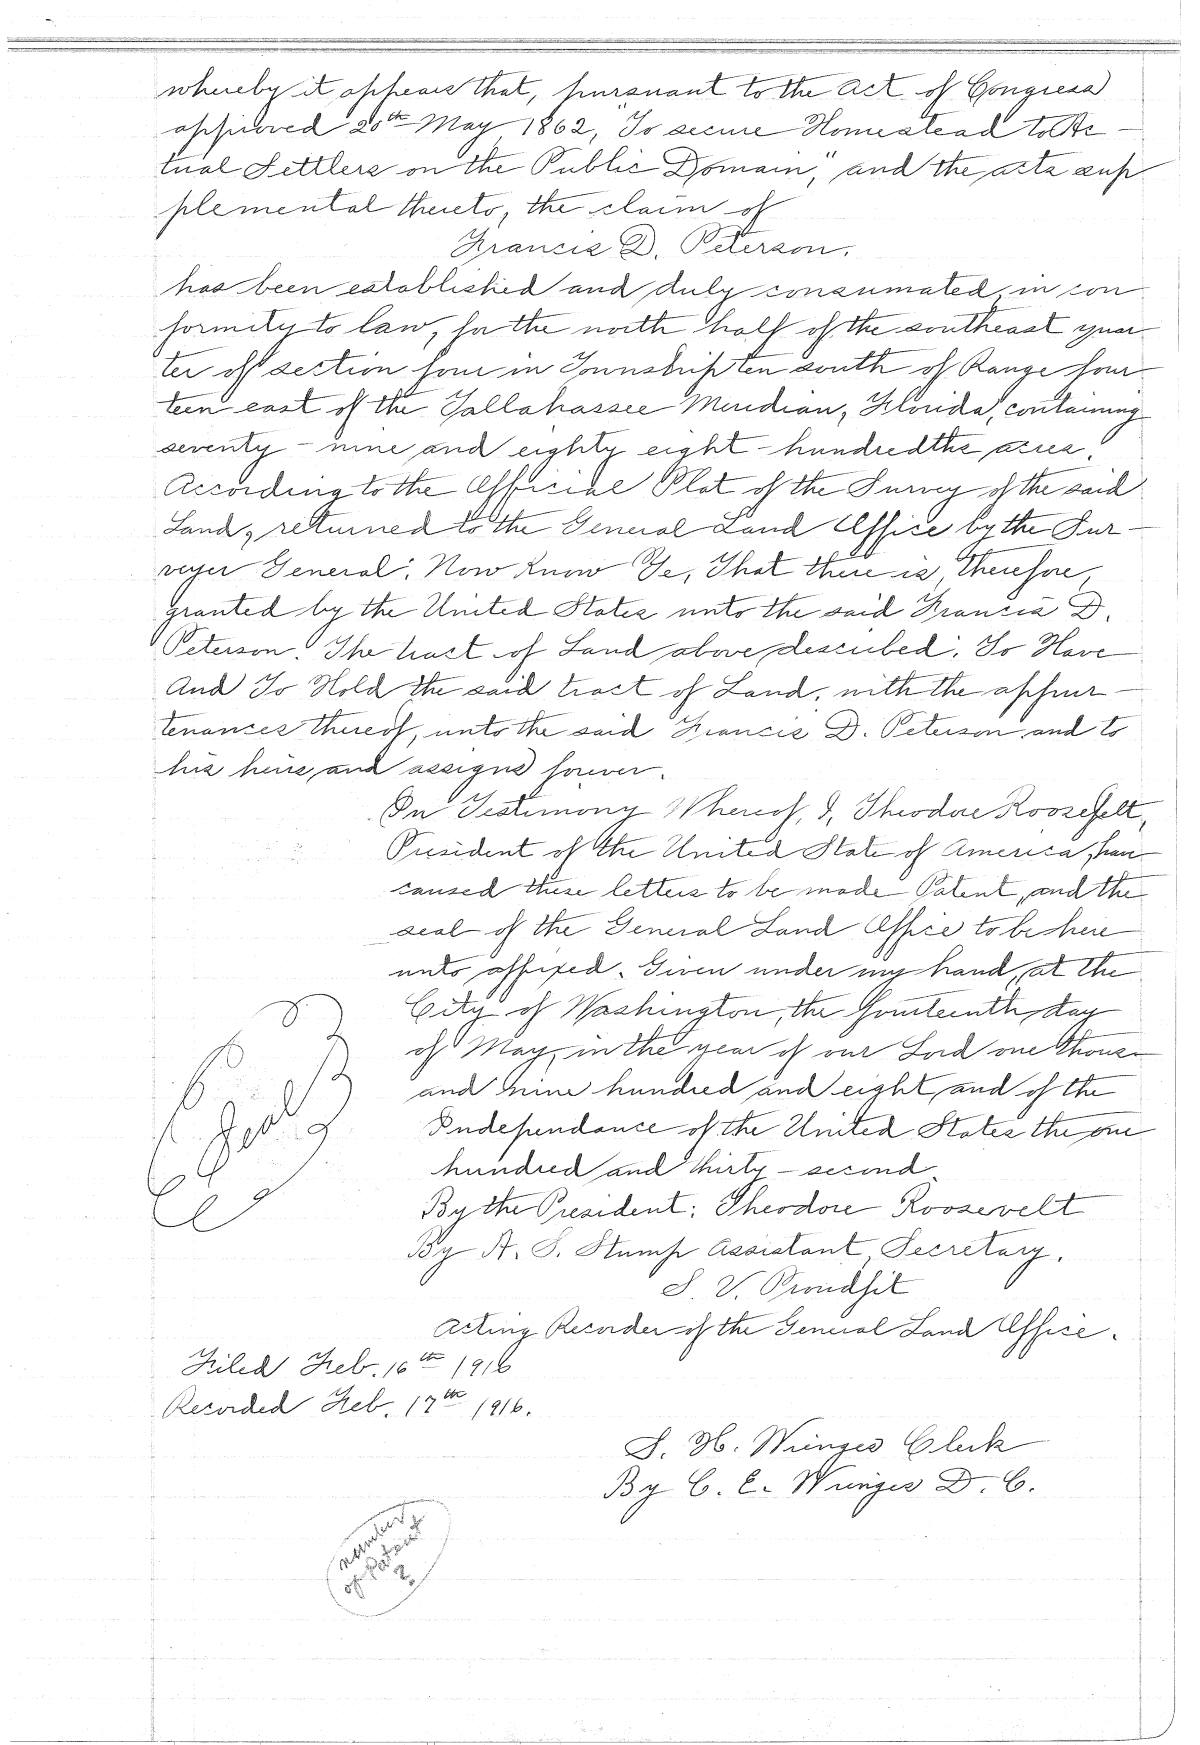 whereby it appears that, pursuant to the Act of Congress
approved 20th May 1862, "To secure Homestead to Ac-
tual Settlers on the Public Domain," and the acts sup
plemental thereto, the claim of
Francis D. Peterson.
has been established and duly consumated, in con
formity to law, for the north half of the southeast quar
ter of section four in Township ten south of Range four
teen east of the Tallahassee Meridian, Florida, containing
seventy-nine and eighty eight-hundredths acres.
According to the Official Plat of the Survey of the said
Land, returned to the General Land Office by the Sur-
veyer General: Now Know Ye, That there is, therefore,
granted by the United States unto the said Francis D.
Peterson. The tract of Land above described: To Have
And To Hold the said tract of Land, with the appur-
tenances thereof, unto the said Francis D. Peterson and to
his heirs and assigns forever.
In Testimony Whereof, I, Theodore Roosefelt,
President of the United State of America, have
caused these letters to be made Patent, and the
seal of the General Land Office to be here
unto affixed. Given under my hand, at the
City of Washington, the fourteenth day
of May, in the year of our Lord one thous-
and nine hundred and eight, and of the
Independance of the United States the one
hundred and thirty-second.
Seal
By the President: Theodore Roosevelt
By A. S. Stump Assistant Secretary.
S. V. Proudfit
Acting Recorder of the General Land Office.
Filed Feb. 16th 1916
Recorded Feb. 17th 1916.
Clerk
By C. E. D. C.
number
of Patent